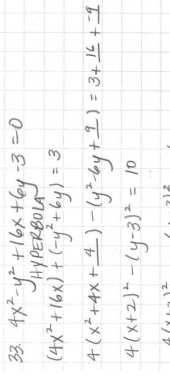 33. 4x²-y²+16x+6y-3=0
HYPERBOLA
(4x²+16x)+(-y²+6y)=3
4(x²+4x+4)-(y²-6y+9)=3+16+-9
4(x+2)²-(y-3)²=10